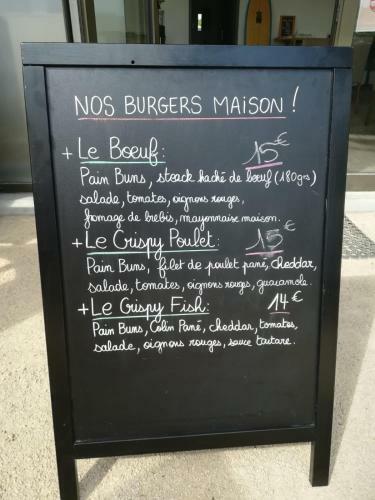 NOS BURGERS MAISON !
+ Le Boeuf: 15€
Pain Buns, steack haché de boeuf (180grs)
salade, tomates, oignons rouges,
fromage de brebis, mayonnaise maison.
+ Le Crispy Poulet: 15€
Pain Buns, filet de poulet pané, cheddar,
salade, tomates, oignons rouges, guacamole.
+ Le Crispy Fish: 14€
Pain Buns, Colin Pané, cheddar, tomates,
salade, oignons rouges, sauce tartare.